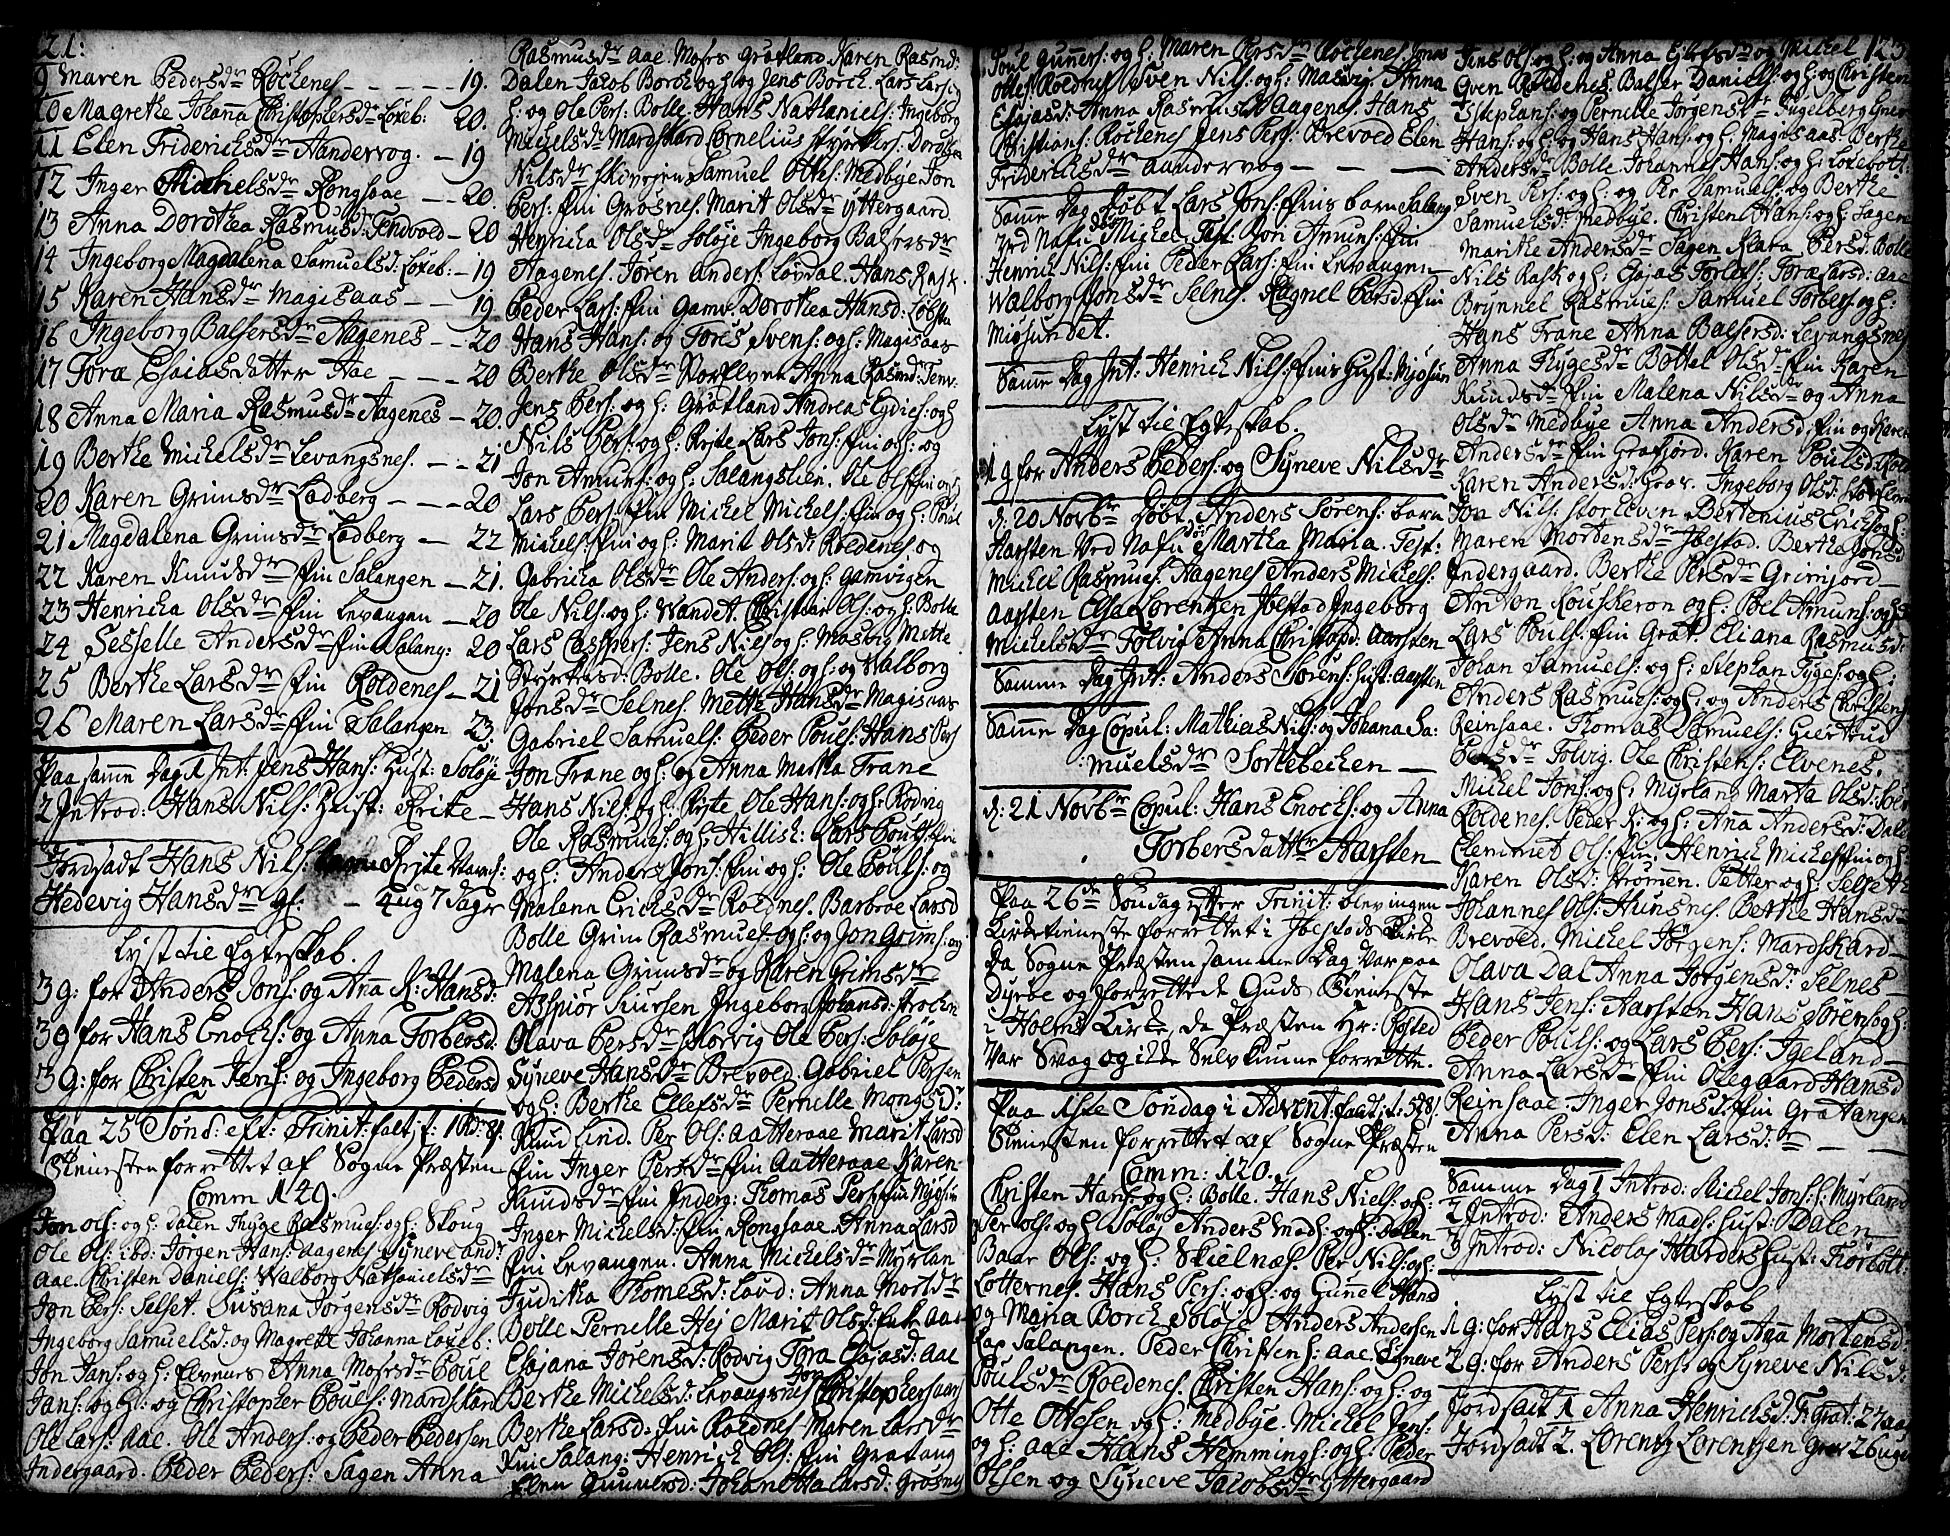 121:
9 Maren Pedersdr Rochenes - - - - - 19.
10 Magrethe Johanna Christophersdr Loxeb: 20.
11 Elen Friderichsdr Aandervog. - 19
12 Inger Michelsdr Rongsaae - - 20.
13 Anna Dorothea Rasmusd: Tendvold - 20
14 Ingeborg Magdalena Samuelsd: Loxeb: - 19
15 Karen Hansdr Magisaas - - 19.
16 Ingeborg Balsersdr Aagenes - - 20
17 Tora Esaiasdatter Aae - - - 20
18 Anna Maria Rasmusdr Aagenes - 20.
19 Berthe Michelsdr Levangsnes. - - 21
20 Karen Grimsdr Ladberg - - - 20
21 Magdalena Grimsdr Ladberg - 22
22 Karen Knudsdr fin Salangen - 21.
23 Henricha Olsdr fin Levangen - 20
24 Sesselle Andersdr fin Salang: 20
25 Berthe Larsdr fin Roldenes - 21
26 Maren Larsdr fin Salangen 23.
Paa samme Dag 1 Int: Jens Hans: Hust: Soløje
2 Introd: Hans Nils: Hust: Krite -
Jordsadt Hans Nils: Krite
Hedevig Hansdr gl: - 4 ug 7 Dager
Lyst til Egteskab.
3 g: for Anders Jons: og Ana K: Hansd:
3 g for Hans Enochs: og Anna Torbersd:
3 g: for Christen Jens: og Ingeborg Pedersd
Paa 25 Sønd: eft: Trinit: falt: t: 1 Rd: 8s:
Tienesten forrettet af Sogne Præsten
Comm 149.
Jon Ols: og h: Dalen Thyge Rasmus: og h: Skoug
Ole Ols: ibd: Jørgen Hans: Aagenes Syneve And:
Aae. Christen Daniels: Walborg Nathanielsdr
Jon Pers: Selset. Susana Jørgensdr Rodvig
Ingeborg Samuelsd: og Magrete Johanna Loxeb:
Jon Jans: og h: Elvenes Anna Mosesdr Poul
Jans: og h: og Christopher Pouls: Mardskar
Ole Lars: Aae. Ole Anders: og Peder Pedersen
Indergaard. Peder Peders: Sagen Anna
Rasmusdr Aae Moses Gratland Karen Rasmd:
Dalen Jacob Borch og h og Jens Borch. Lars Lars: og
h: og Ole Pers: Bolle. Hans Nathaniels: Ingeborg
Michelsd: Mardskard Cornelius Styrkers: Dorothea
Nilsdr Skovejen Samuel Ottes: Medbye Jon
Pers: fin Grosnes. Marit Olsdr Yttergaard.
Henricha Olsdr Soløje Ingeborg Balsersdr
Aagenes. Joren Anders: Løvdal. Hans Rask.
Peder Lars: fin Gamv: Dorothea Hansd: Løbsta
Hans Hans: og Tores Svens: og h: Magisaas
Berthe Olsdr Storelven Anna Rasmd: Tenv:
Jens Pers: og h: Gratland Andreas Eydies: og h
Nils Pers: og h: Krite Lars Jons: fin og h: og
Jon Amuns: og h: Salangslien. Ole Ols fin og h
Lars Pers: fin Michel Michels: fin og h: Poul
Michels: fin og h: Marit Olsd: Roldenes og
Gabricha Olsdr Ole Anders: og h: Gamvigen
Ole Nils: og h: Wandet Christian Ols: og h: Bolle
Lars Caspers: Jens Niels og h: Masvig Mette
Styrkersd: Bolle. Ole Ols: og h: og Walborg
Jonsdr Selnes. Mette Hansdr Magisaas
Gabriel Samuels: Peder Pouls: Hans Pers
Jon Frane og h: og Anna Martha Frane
Hans Nils: og h: Krite Ole Hans: og h: Rodvig
Ole Rasmus: og h: Hillish: Lars Pouls: fin
og h: Anders Jons: fin og h: Ole Pouls: og
Malena Erichsdr Roldnes. Barbroe Larsd
Bolle Grim Rasmus: og h: og Jon Grims: og
Malena Grimsdr og Karen Grimsdr
Ingeborg Johansd:
Olava Persdr Skorvig Ole Pers: Soløje
Syneve Hansdr Brevoed. Gabriel Persen
og h: Berthe Ellefsdr Pernelle Mongsdr:
Knud Lind. Per Ols: Aatteraae Marit Larsd
fin Inger Persdr fin Aatteraae Karen
Knudsdr fin Inderg: Thomas Pers: fin Mjøsun
Inger Michelsd: fin Rongsaae. Anna Larsd
fin Levangen. Anna Michelsdr Myrlan
Juditha Thomesd: Lavd: Anna Mortdr
Bolle Pernelle Hej Marit Olsd: Aae
Esajana Jørensd: Rodvig Tora Esajasd: Aae
Berthe Michelsd: Levangsnes Jon Christophersaas
Berthe Larsd: fin Roldnes Maren Larsdr
fin Salang: Henrich Ols: fin Gratang
Elen Gunnersd: Johan Otta Larsd: Grosnes
Poul Gunners: og h: Maren Persdr Rochenes Jonas
Ottes: Roldnes Sven Nils: og h: Masvig. Anna
Esajasd: Anna Rasmusd: Aagenes. Hans
Christians: Rochenes Jens Pers: Brevoed Elen
Fridrichsdr Aandervog - - -
Samme Dag Døbt Lars Jons: fins barn Salang
Ved Nafn Michel. Test: Jon Amuns: fin
Henrich Nils: fin Peder Lars: fin Levangen
Walborg Jonsdr Selnes. Ragnel Persd: fin
Miøsundet.
Samme Dag Int: Henrich Nils: fins Hust: Mjøsun
Lyst til Egteskab.
1 g for Anders Peders: og Syneve Nilsdr
d: 20 Novbr Døbt Anders Sørens: barn
Aarsten Ved Nafn Martha Maria. Test:
Michel Rasmus: Aagenes Anders Michels:
Aarsten Elsae Lorentzen Ibestad Ingeborg
Michelsdr Følvig Anna Christopd: Aarsten
Samme Dag Int: Anders Sørens: Hust: Aarsten
Samme Dag Copul: Mathias Nils: og Johana Sa:
muelsdr Sortebechen -
d: 21 Novbr Copul: Hans Enochs: og Anna
Torbersdatter Aarsten
Paa 26de Søndag efter Trinit: blev ingen
Kirketieneste forrettet i Ibestads Kirke
Da Sogne Præsten samme Dag Var paa
Dyrøe og forrettede Guds Tieneste
i Holms Kirke, da Præsten Hr:
Var Svag og ikke Selv kunne forrette.
Paa 1ste Søndag i Advent faldt: t: 5 8s:
Tienesten forrettet af Sogne Præsten
Comm: 120.
Christen Hans: og h: Bolle. Hans Niels: og h:
Per Ols: og h: Soløj Anders Mads: og h: Dalen
Baar Ols: og h: Skielnæs. Per Nils: og h:
Lotternes. Hans Pers: og h: og Gunnel Hand
og Maria Borch Soløje Anders Andersen
Lap Salangen. Peder Christens: Aae. Syneve
Poulsdr Roldenes. Christen Hans: og h: og
Otte Ottesen og h: Medbye. Michel Jens:
og h: Aae Hans Hemmings: og h: Peder
Olsen og Syneve Jacobsdr Yttergaard
Jens Ols: og h: og Anna Ellefsdr og Michel 123
Even Roldenes. Balser Daniels: og h: og Christen
Estephans: og Pernille Jørgensdr Engelberg Ener
Hans: og h: og Hans Hans: og h: Magisaas Berthe
Andersdr Bolle. Johannes Hans: og h: Loxebott:
Sven Pers: og h: og Per Samuels: og Berthe
Samuelsd: Medbye. Christen Hans: og h: Sagen
Marithe Andersdr Sagen Klara Persd: Bolle
Nils Rask og h: Esajas Torlefs: Tora Larsd: Aae
Brynnel Rasmus: Samuel Torbers: og h:
Hans Frane Anna Balsersd: Levangsnes
Anna Thygesdr Boltel Olsdr fin Karen
Knudsdr fin Malena Nilsdr og Anna
Olsdr Medbye Anna Andersd: fin og Karen
Andersdr fin Grafjord. Karen Poulsd: Rold
Karen Andersd: Grav. Ingeborg Olsd: Storelven
Jon Nils: Storelven Bertenius Erichs: og h:
Maren Mortensdr Ibestad. Bertha Jonsd
Indergaard. Berthe Persdr Grimfjord
Anton Kouskeron og h: Poel Amuns: og h:
Lars Pouls: fin Grat. Eliana Rasmusd:
Johan Samuels: og h: Stephan Tyges: og h:
Anders Rasmus: og h: og Anders Christens:
Reinsaae. Thomas Samuels: Giertrud
Persdr Følvig. Ole Christens: Elvenes.
Michel Jons: og h: Myrland Marta Olsd: Soløj
Roldenes. Peder K: og h: Anna Andersd: Dale
Clemmet Ols: fin. Henrich Michels fin og h:
Karen Olsd: Strømen. Petter og h: Selset
Johannes Ols: Hunsnes. Berthe Hansdr
Brevoed. Michel Jørgens: Mardskard
Olava Dal Anna Jørgensd: Selnes
Hans Jens: Aarsten Hans Sørens: og h:
Peder Pouls: og Lars Pers: Igeland
Anna Larsdr fin Olegaard Hansd
Reinsaae. Inger Jonsd: fin Gratangen
Anna Persd: Elen Larsd:
Samme Dag 1 Introd: Michel Jons: h: Myrland
2 Introd: Anders Mads: Hust: Dalen
3 Introd: Nicolas Harders Hust: Tiørbott:
Lyst til Egteskab
1 g: for Hans Elias Pers: og Ana Mortensd:
2 g: for Anders Pers: og Syneve Nilsd:
Jordsadt 1 Anna Henrichsd: F: Grat: 27 aar
Jordsadt 2. Lorentz Lorentzen Grav 26 uger